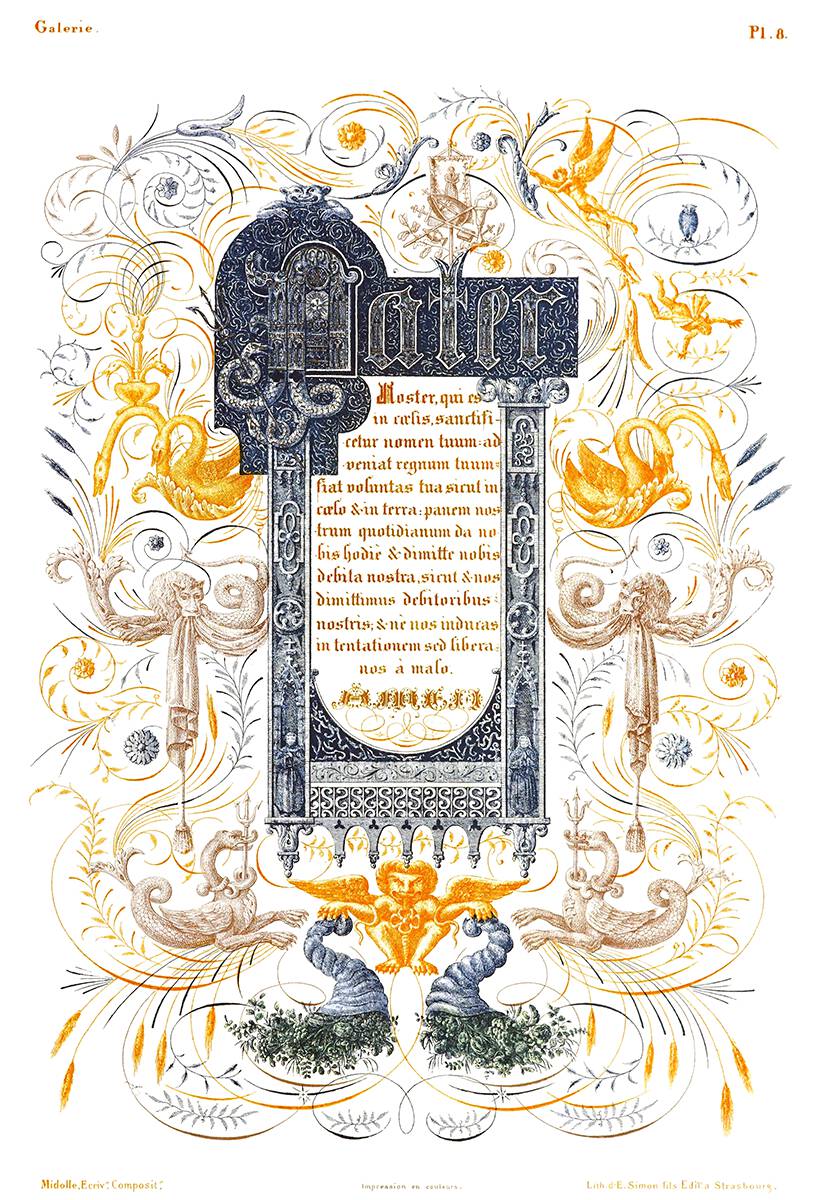 Galerie.
Pl. 8.
Pater
Noster, qui es
in cœlis, sanctifi-
cetur nomen tuum: ad
veniat regnum tuum:
fiat voluntas tua sicut in
cœlo & in terra: panem nos
trum quotidianum da no
bis hodie & dimitte nobis
debita nostra, sicut & nos
dimittimus debitoribus
nostris; & ne nos inducas
in tentationem sed libera:
nos à malo.
AMEN
Midolle, Ecriv.n Composit.r
Impression en couleurs.
Lith. d'E. Simon fils Edit.r a Strasbourg.